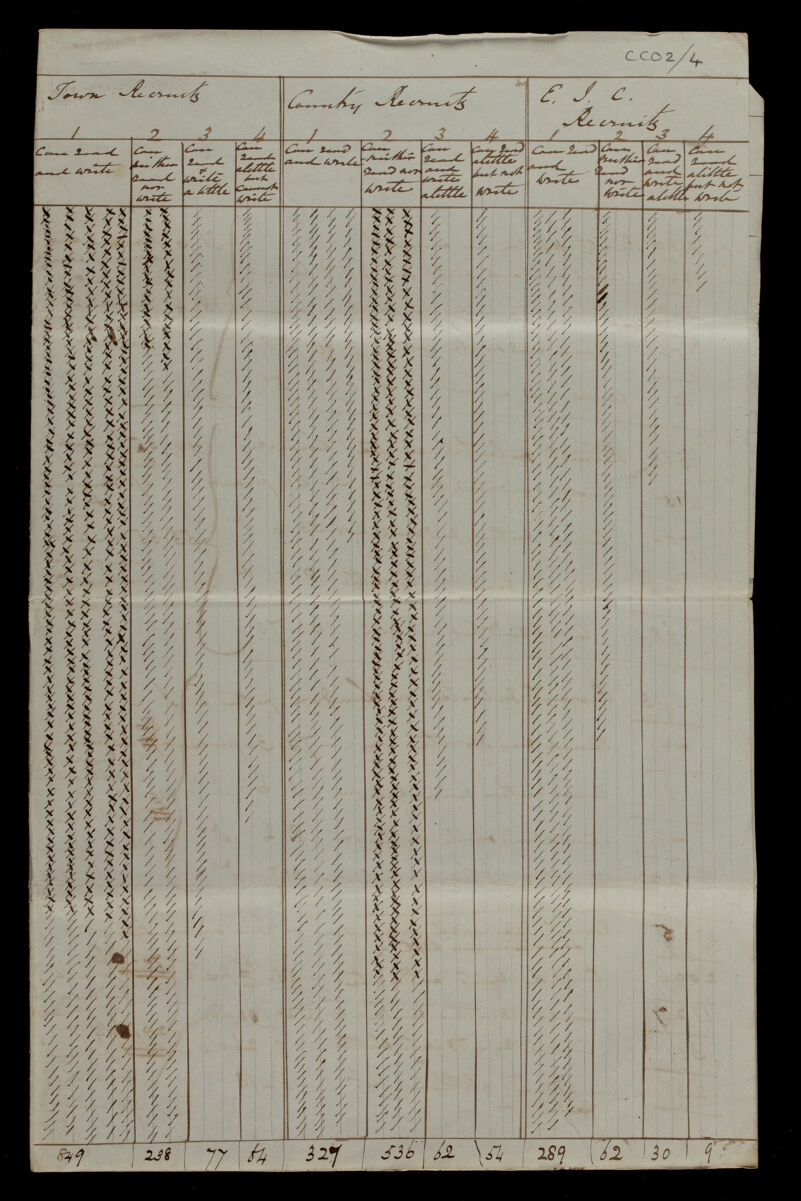 CC02/4
Town Recruits
Country Recruits
E. I. C.
Recruits
1 2 3 4 1 2 3 4 1 2 3 4
Can read
and write
Can
neither
read
nor
write
Can
read
&
write
a little
Can
read
alittle
but
cannot
write
Can read
and write
Can
neither
read nor
write
Can
read
and
write
alittle
Can read
alittle
but not
write
Can read
and
write
Can
neither
read
nor
write
Can
read
and
write
alittle
Can
read
alittle
but not
write
849 238 77 64 327 536 62 54 289 62 30 9